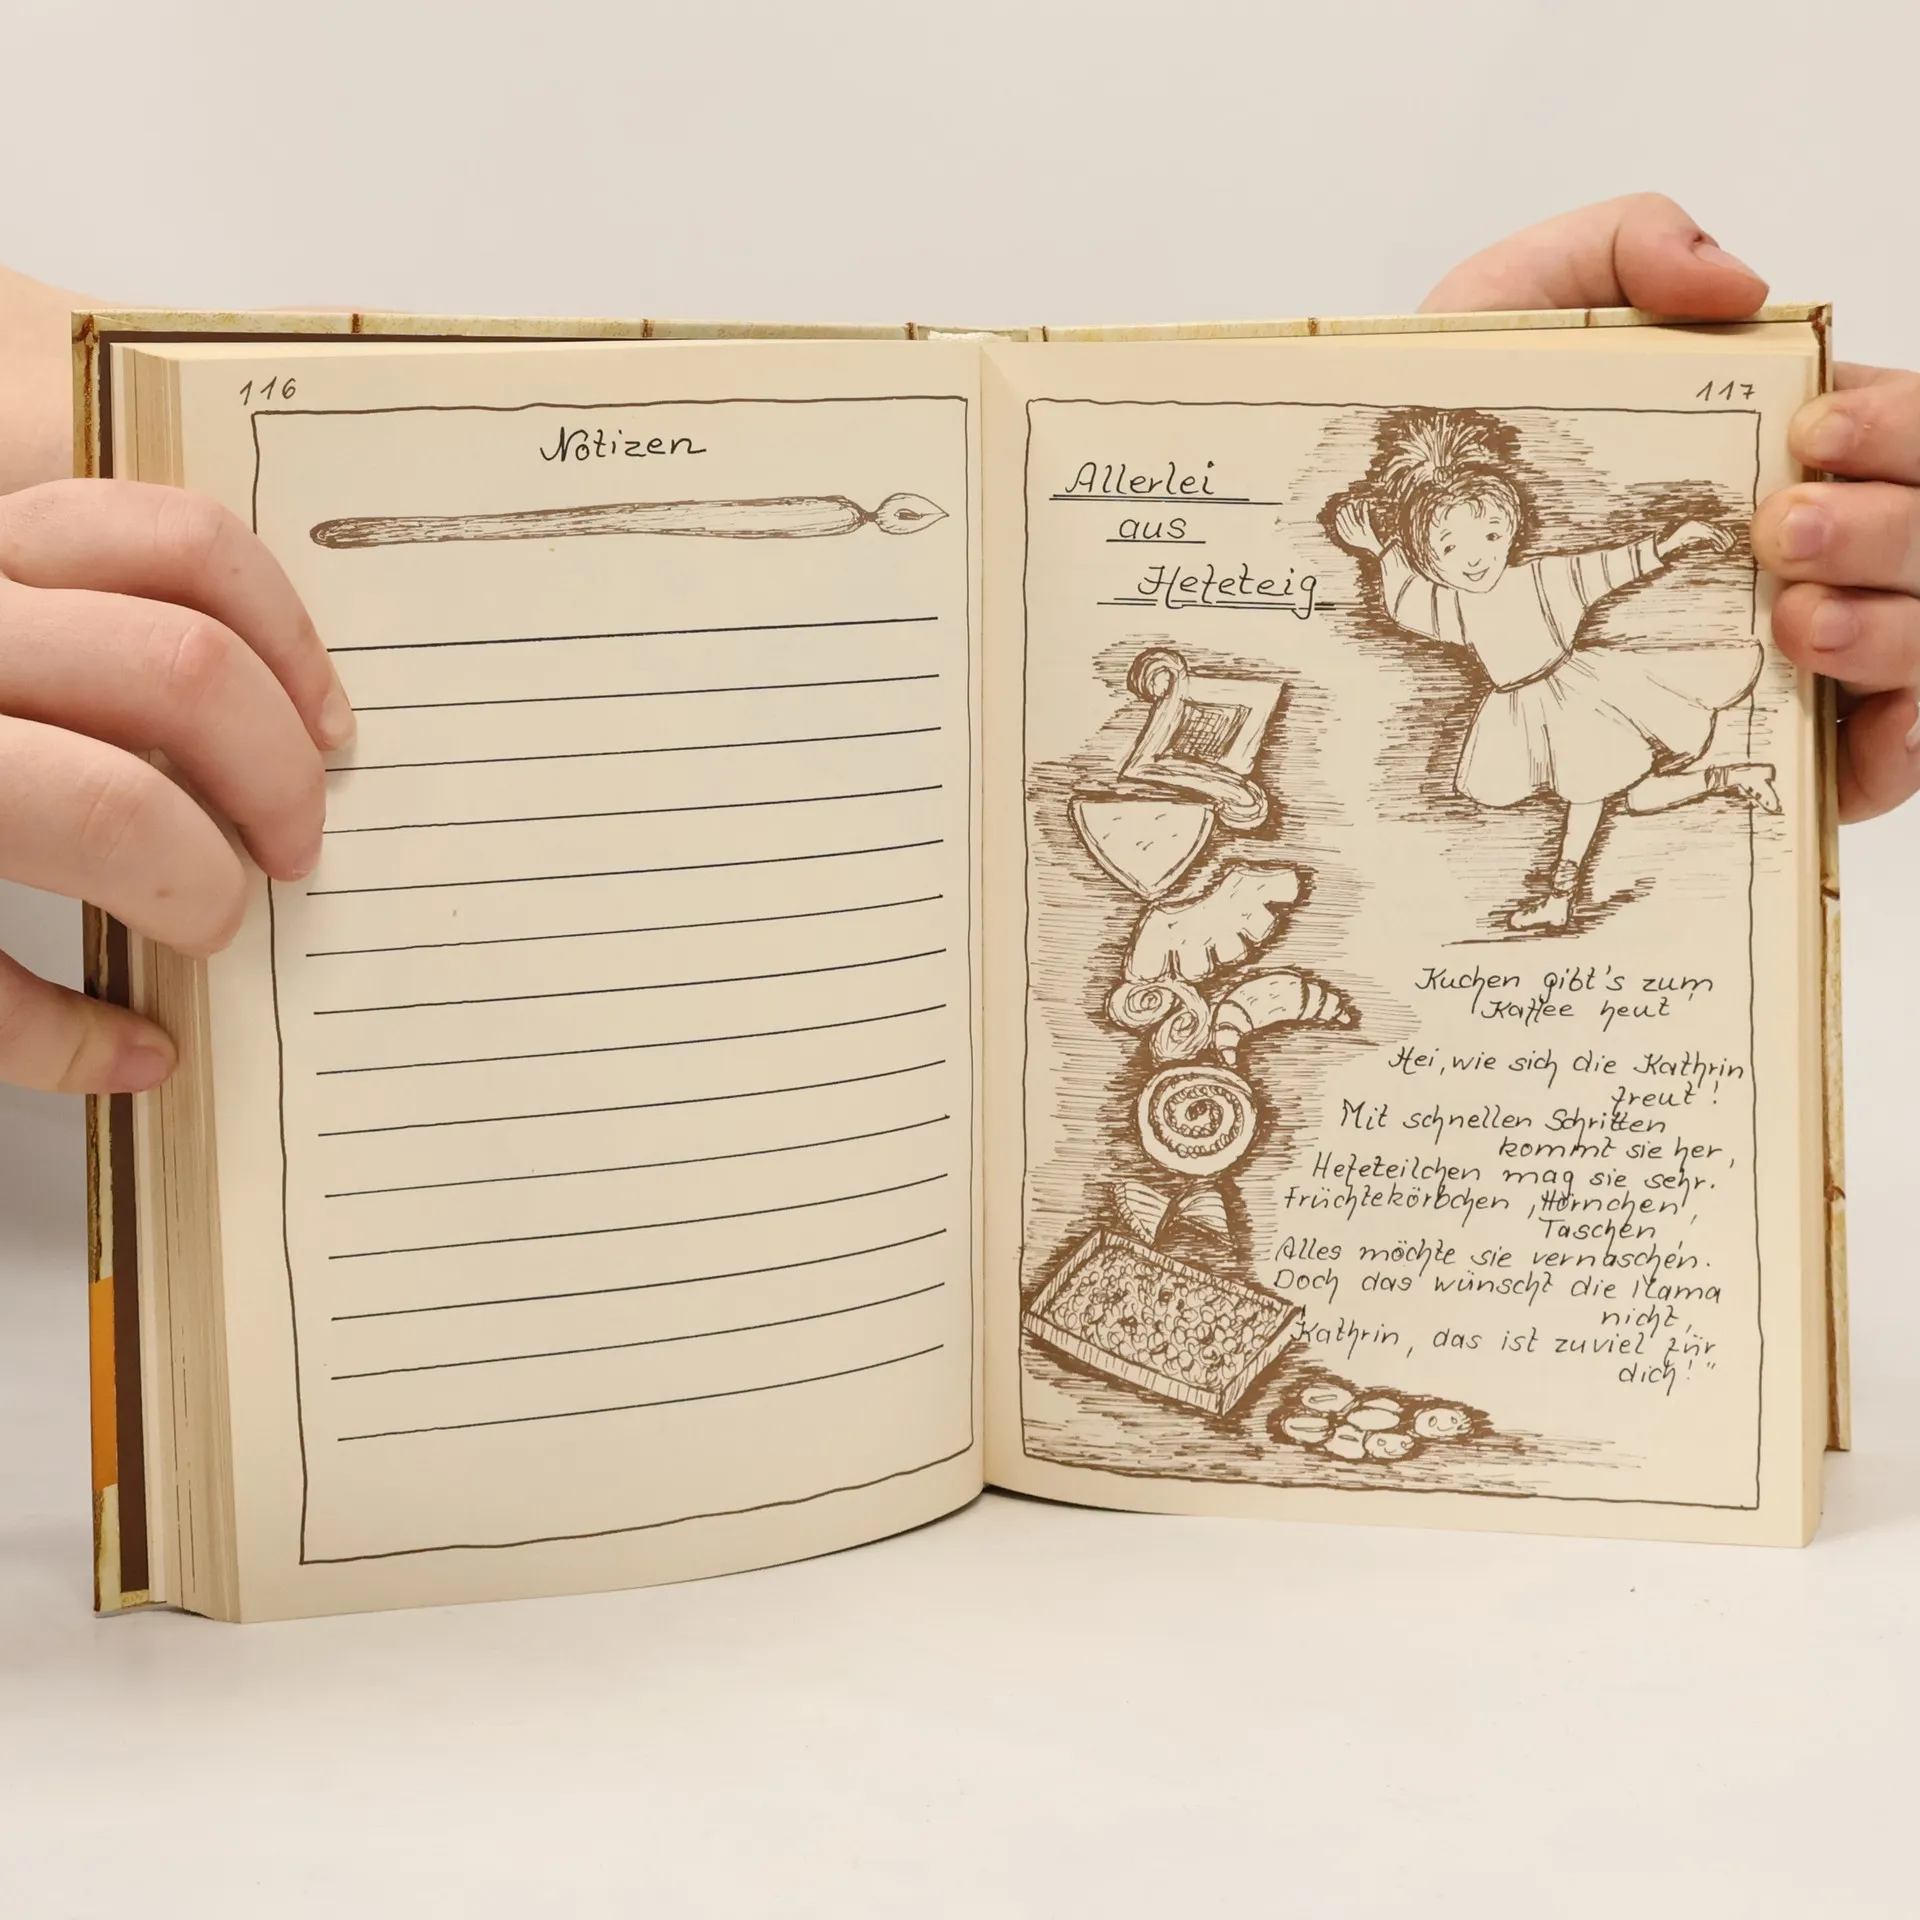 116
Notizen
117
Allerlei
aus
Hefeteig
Kuchen gibt's zum
Kaffee heut
Hei, wie sich die Kathrin
freut!
Mit schnellen Schritten
kommt sie her,
Hefeteilchen mag sie sehr.
Früchtekörbchen, Hörnchen,
Taschen,
Alles möchte sie vernaschen.
Doch das wünscht die Mama
nicht,
Kathrin, das ist zuviel für
dich!"